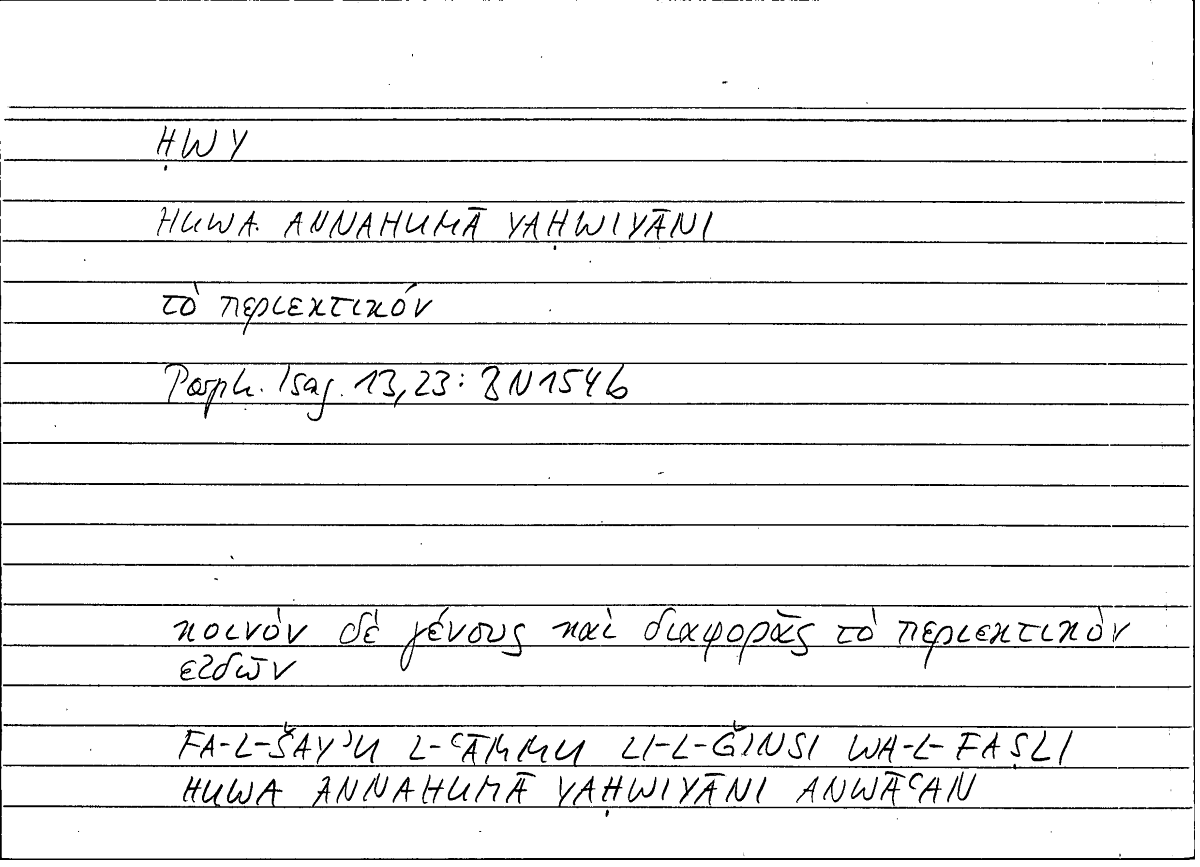 ḤWY
HUWA ANNAHUMĀ YAḤWIYĀNI
τὸ περιεκτικόν
Porph. Isag. 13,23: BN 154b
κοινὸν δὲ γένους καὶ διαφορᾶς τὸ περιεκτικὸν
εἰδῶν
FA-L-ŠAYʾU L-ʿĀMMU LI-L-ǦINSI WA-L-FAṢLI
HUWA ANNAHUMĀ YAḤWIYĀNI ANWĀʿAN